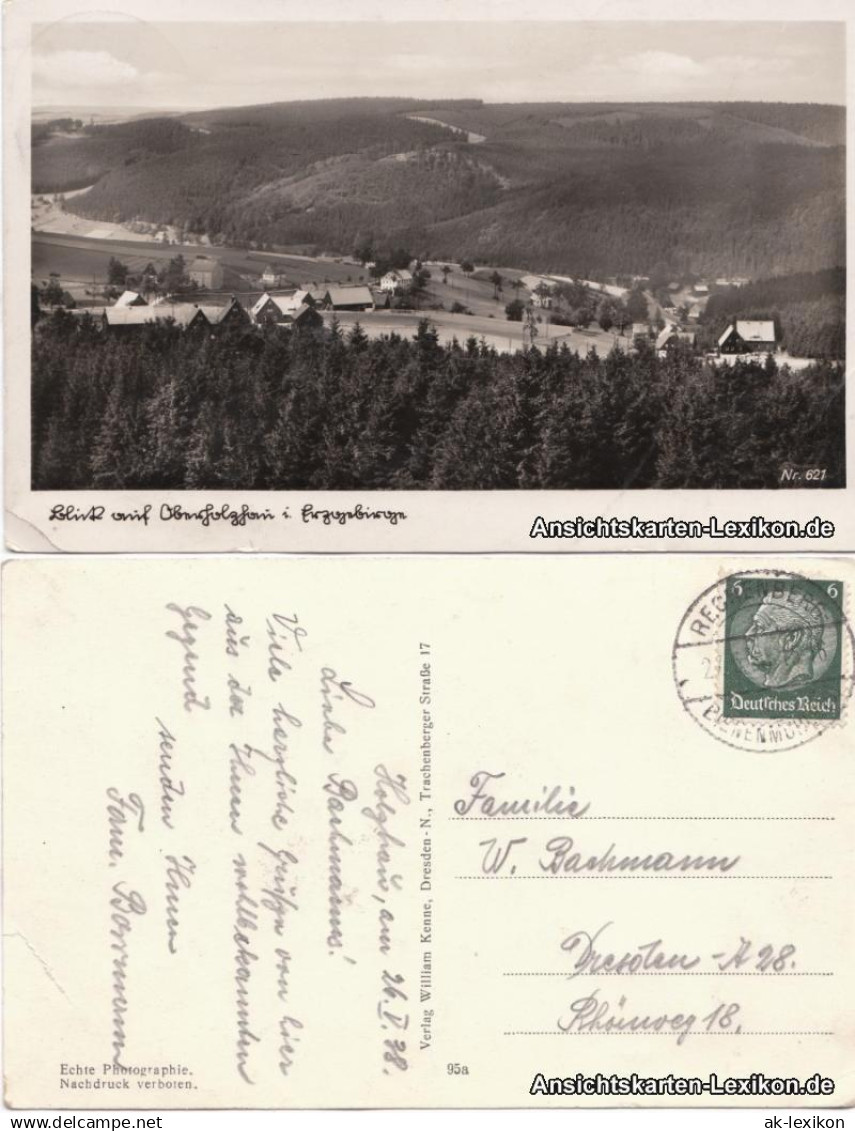 Nr. 621
Blick auf Oberholzhau i. Erzgebirge
Ansichtskarten-Lexikon.de
Holzhau, am 26. V. 38.
Liebe Bachmanns!
Viele herzliche Grüße von hier
aus der Ihnen wohlbekannten
Gegend
senden Ihnen
Fam.
Verlag William Kenne, Dresden-N., Trachenberger Straße 17
6 6
Deutsches Reich
Familie
W. Bachmann
Dresden-A 28.
18.
Echte Photographie.
Nachdruck verboten.
95a
Ansichtskarten-Lexikon.de
delcampe.net
ak-lexikon